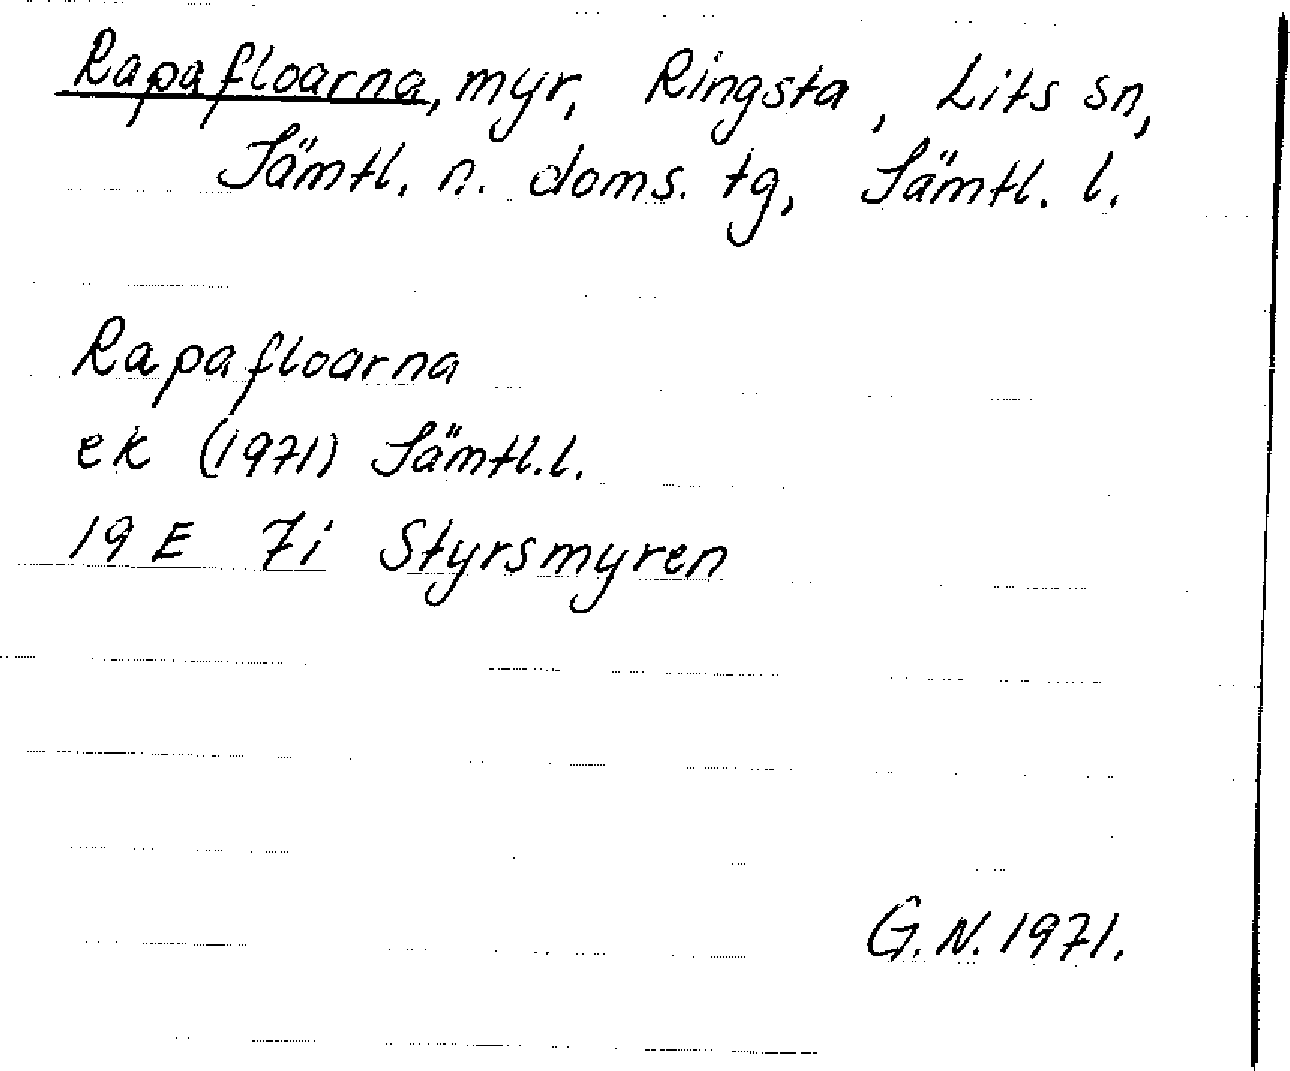 Rapafloarna, myr, Ringsta, Lits sn,
Jämtl. n. doms. tg, Jämtl. l.
Rapafloarna
ek (1971) Jämtl.l.
19 E 7i Styrsmyren
G.N. 1971.